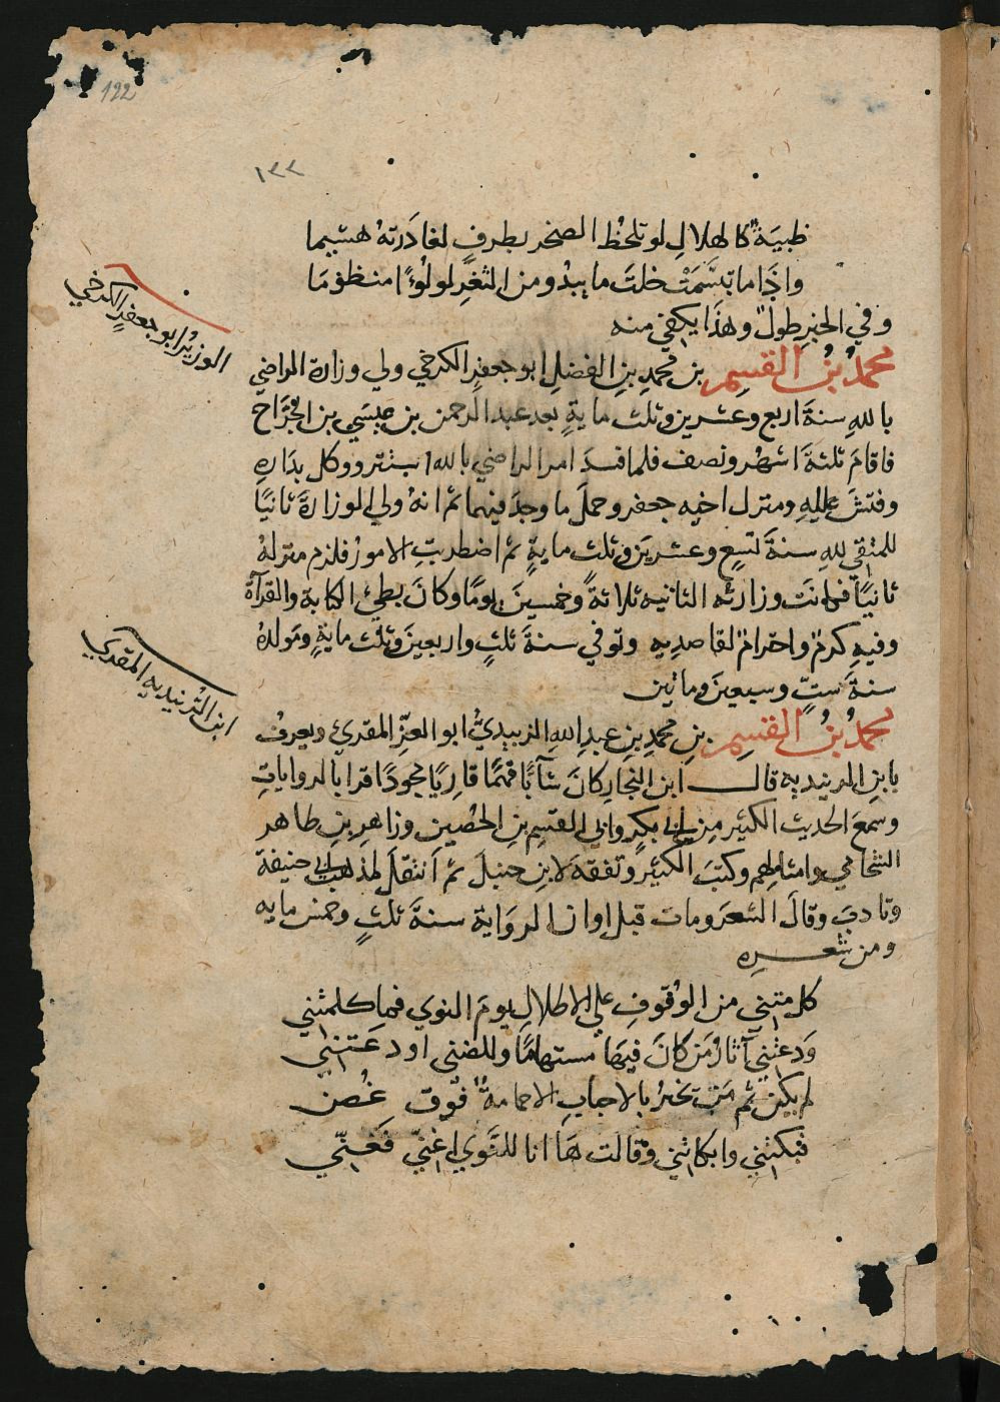 122
١٢٢
ظبيةٌ كالهلالِ لو تلحظُ الصخر بطرفٍ لغادَرتهُ هشيما
واذا ما تبسَّمَتْ خلتَ ما يبدُو من الثغرِ لولُوءًا منظومَا
وفي الخبرِ طولٌ وهذَا يكفي منه
محمدُ بنُ القسِمِ بن محمدِ بنِ الفضلِ ابو جعفرٍ الكرخي ولي وزارة الراضي
باللهِ سنةَ اربع وعشرين وثلث مايةٍ بعد عبد الرحمن بن عيسي بن الجَرَّاح
فاقامَ ثلثةَ اشهُر ونصف فلما فسدَ امر الراضي بالله استتر ووكل بدَارهِ
وفتشَ عليهِ ومنزل اخيهِ جعفر وحملَ ما وجدَ فيهما ثم انهُ ولي الوزارةَ ثانيًا
للمتقي للهِ سنةَ تسعٍ وعشرينَ وثلث مايةٍ ثم اضطربتِ الامورُ فلزم منزلهُ
ثانيًا فكانت وزارتُه الثانيه ثلاثةً وخمسينَ يومًا وكانَ بطئ الكتابة والقرآة
وفيهِ كرمٌ واحترامٌ لقاصديه وتوفي سنةَ ثلثٍ واربعينَ وثلث مايةٍ ومولدهُ
سنةَ ستٍّ وسبعينَ وماتين
محمدُ بنُ القسِمِ بنِ محمدِ بنِ عبدِ اللهِ الزبيديُّ ابو العزِّ المقرئ ويعرفُ
بابنِ الزبيديه قال ابن النجار كانَ شآبًا فهمًا قاريًا مجودًا قرا بالرواياتِ
وسمعَ الحديث الكثير من ابي بكرٍ وابي القسِم بنِ الحُصينِ وزاهرِ بنِ طاهر
الشحامي وامثالهم وكتبَ الكثيرَ وتفقهَ لابنِ حنبلَ ثم انتقلَ لمذهب ابي حنيفة
وتادبَ وقالَ الشعرَ ومات قبل اوان الروَاية سنةَ ثلثٍ وخمس مايه
ومن شعرِه
كلمتني من الوُقوفِ علي الاطلالِ يومَ النوي فما كلمتني
وَدعتني آثارُ مَن كانَ فيهَا مستهامًا وللضني اودعَتني
لم يكن ثم مَن تخبرُ بالاحبابِ الا حمامةٌ فوق غُصن
فبكتني وابكاتني وقالت هَا انا للنَّوي اغني فَغَنِّي
الوزيرُ ابو جعفرٍ الكرخي